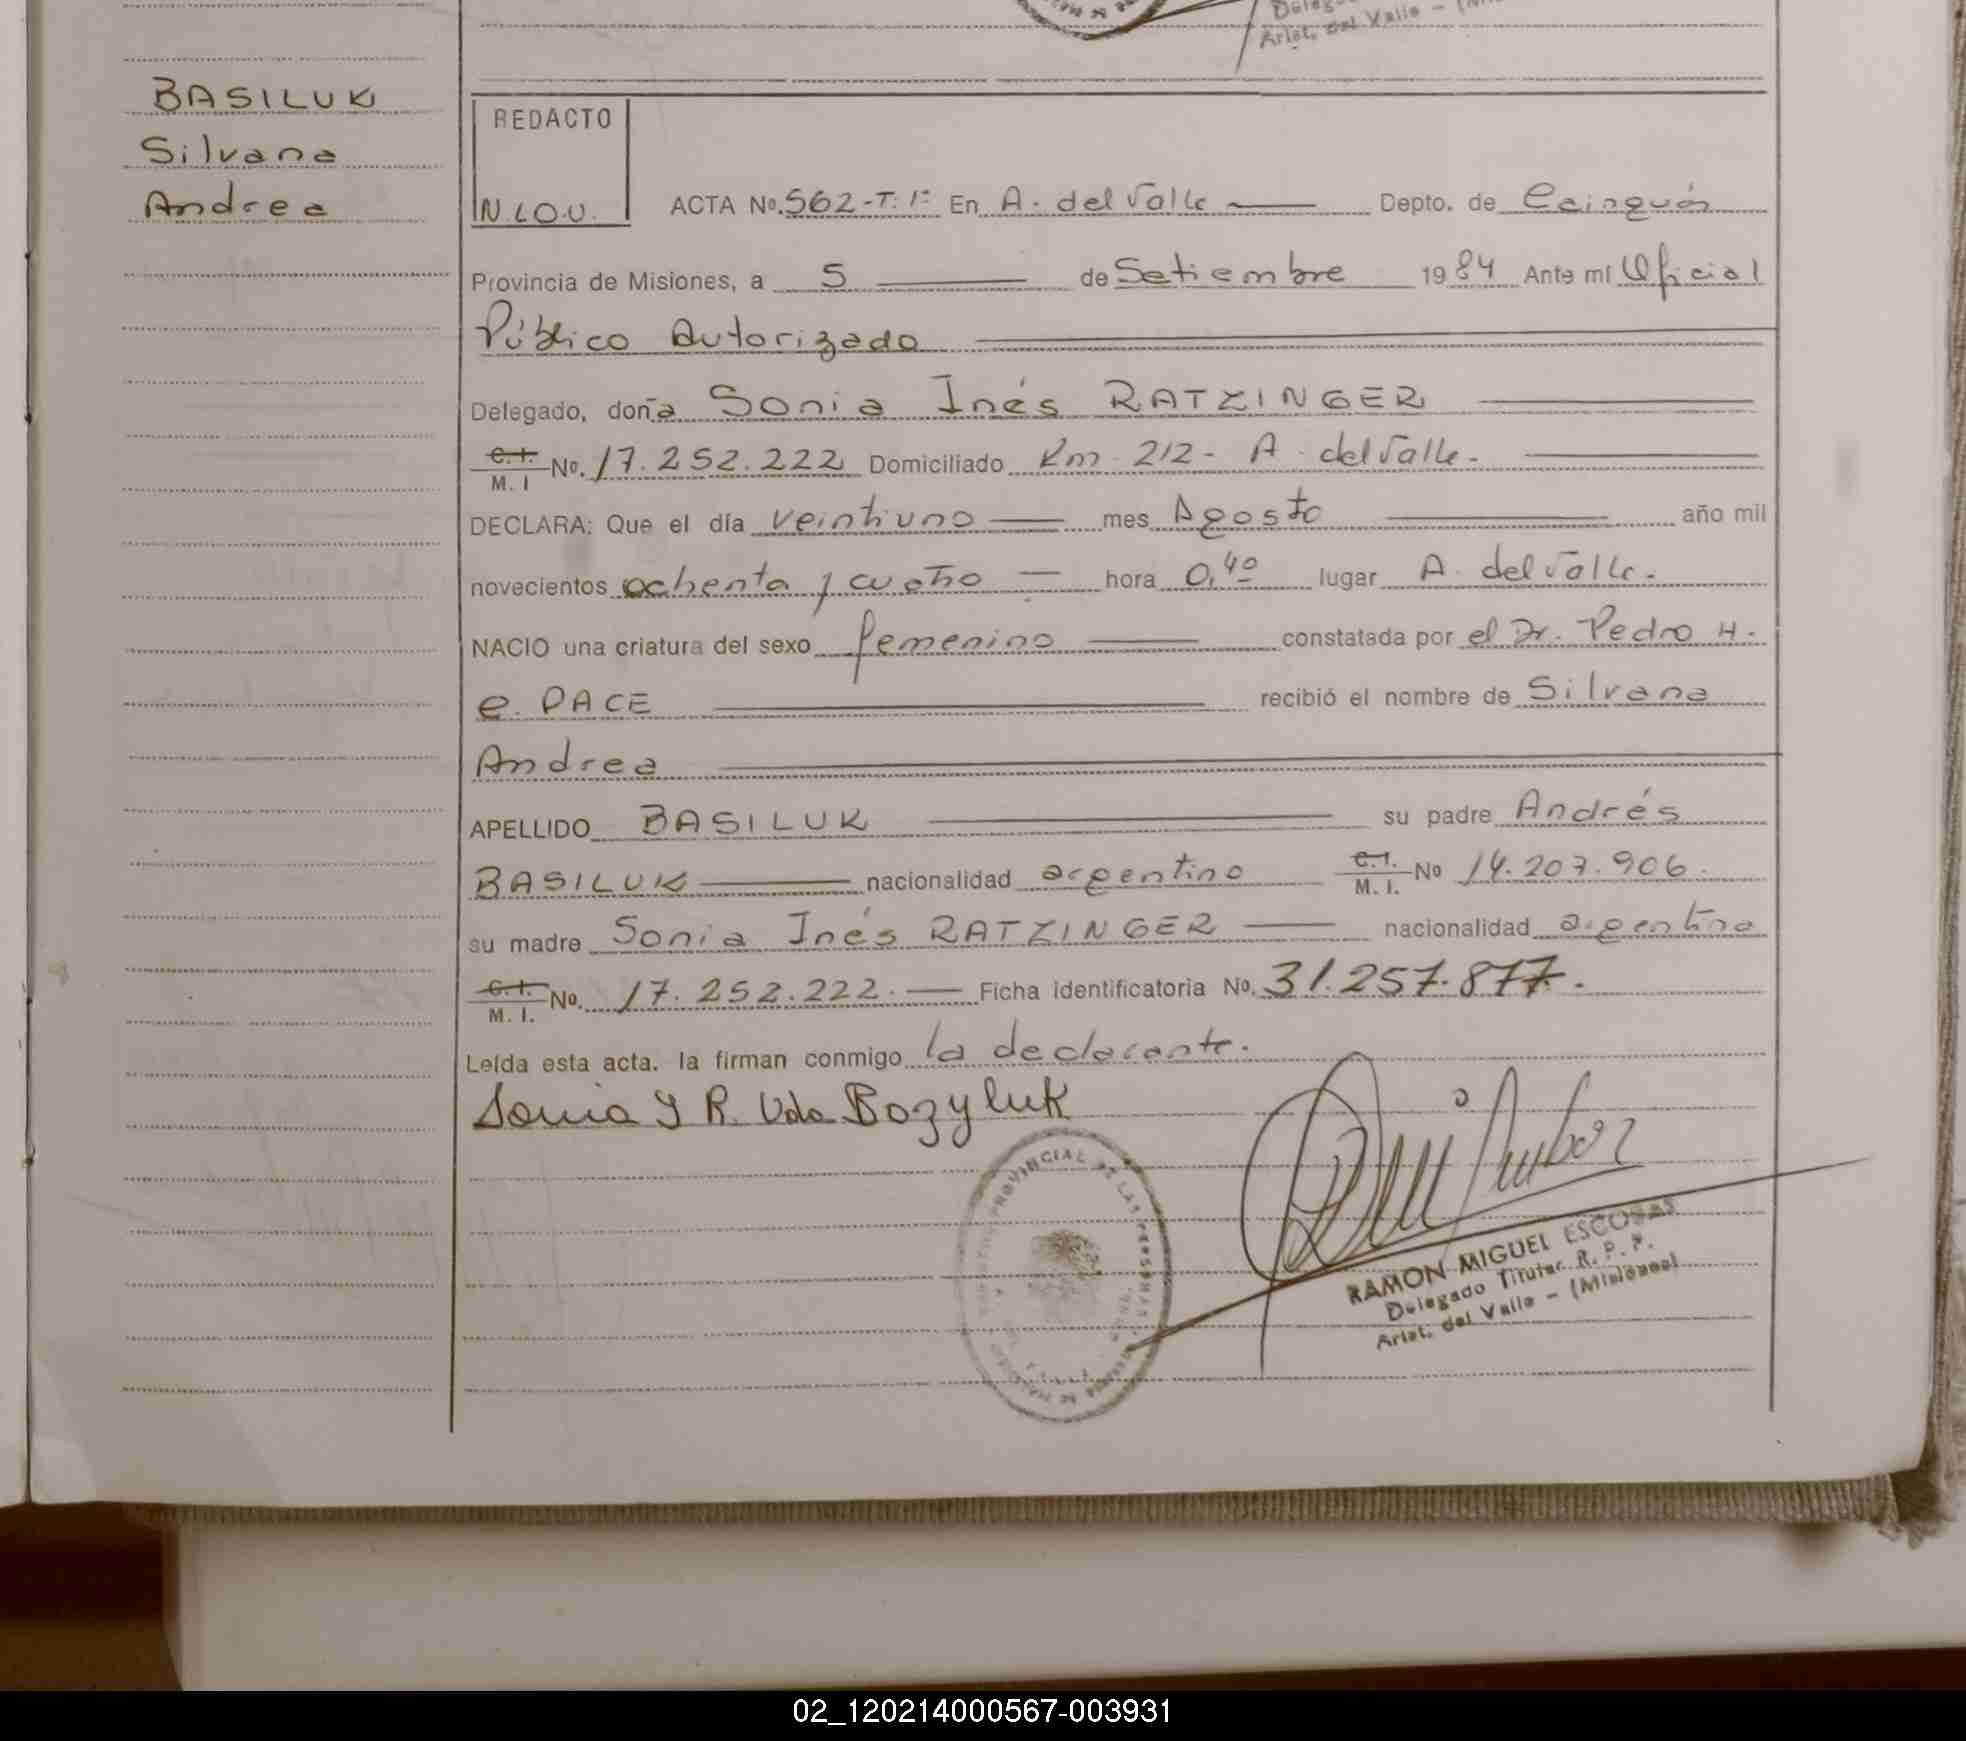 Deleg
Arist. del Valle - (Mi
BASILUK
Silvana
Andrea
REDACTO
N.LO.U.
ACTA No. 562-T: 1º En A. del Valle Depto. de Cainguás
Provincia de Misiones, a 5 de Setiembre 1984 Ante mí Oficial
Público Autorizado
Delegado, doña Sonia Inés RATZINGER
C.I. M. I No. 17.252.222 Domiciliado Km 212- A. del Valle.
DECLARA: Que el día veintiuno mes Agosto año mil
novecientos ochenta y cuatro hora 0,40 lugar A. del Valle.
NACIO una criatura del sexo femenino constatada por el Dr. Pedro H.
C. PACE recibió el nombre de Silvana
Andrea
APELLIDO BASILUK su padre Andrés
BASILUK nacionalidad argentino C.I. M. I. No 14.207.906.
su madre Sonia Inés RATZINGER nacionalidad argentina
C.I. M. I. No. 17.252.222. Ficha identificatoria No. 31.257.877.
Leída esta acta. la firman conmigo la declarante.
Sonia Y R. Vda Bozyluk
PROVINCIAL DE LAS PERSONAS
RAMON MIGUEL ESCOBAR
Delegado Titular R. P. P.
Arist. del Valle - (Misiones)
02_120214000567-003931